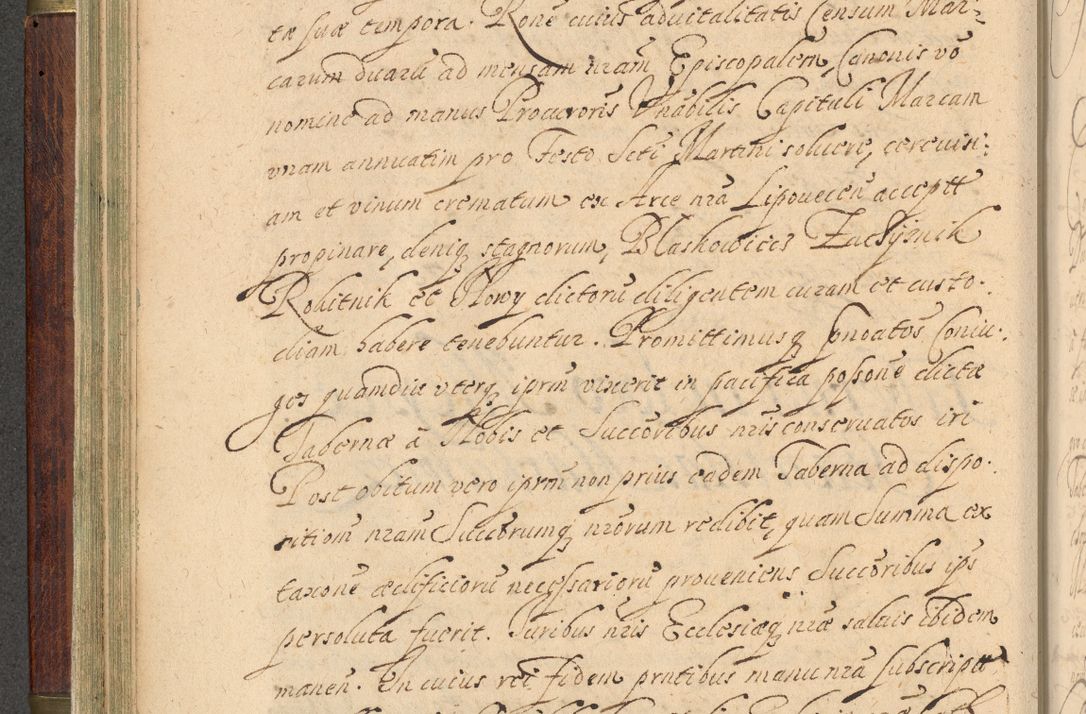 tæ suæ tempora. Rone cuius aduitalitatis Censum Mar-
carum ducarū ad mensam nram Episcopalem, Canonis vō
nomine ad manus Procuroris Vnabilis Capituli Marcam
vnam annuatim pro Festo Scti Martini soluere, cereuisi-
am et vinum crematum ex Arce nra Lipouecen acceptt
propinare, deniq stagnorum, Blaskowices
Rokitnik et Nowy dictorū diligentem curam et custo-
diam habere tenebuntur. Promittimusq pnoatos Coniu-
ges quamdiu vterq ipsm vixerit in pacifica possone dictæ
Tabernæ à Nobis et Succoribus nris conseruatos iri
Post obitum vero iprm non prius eadem Taberna ad dispo-
sitiom nram Succorumq nrorum redibit, quam Summa ex
taxone ædificiorū necessariorū proueniens Succoribus ips
persoluta fuerit. Juribus nris Ecclesiæq nræ saluis ibidem
manen. In cuius rei fidem pntibus manu nra subscriptt